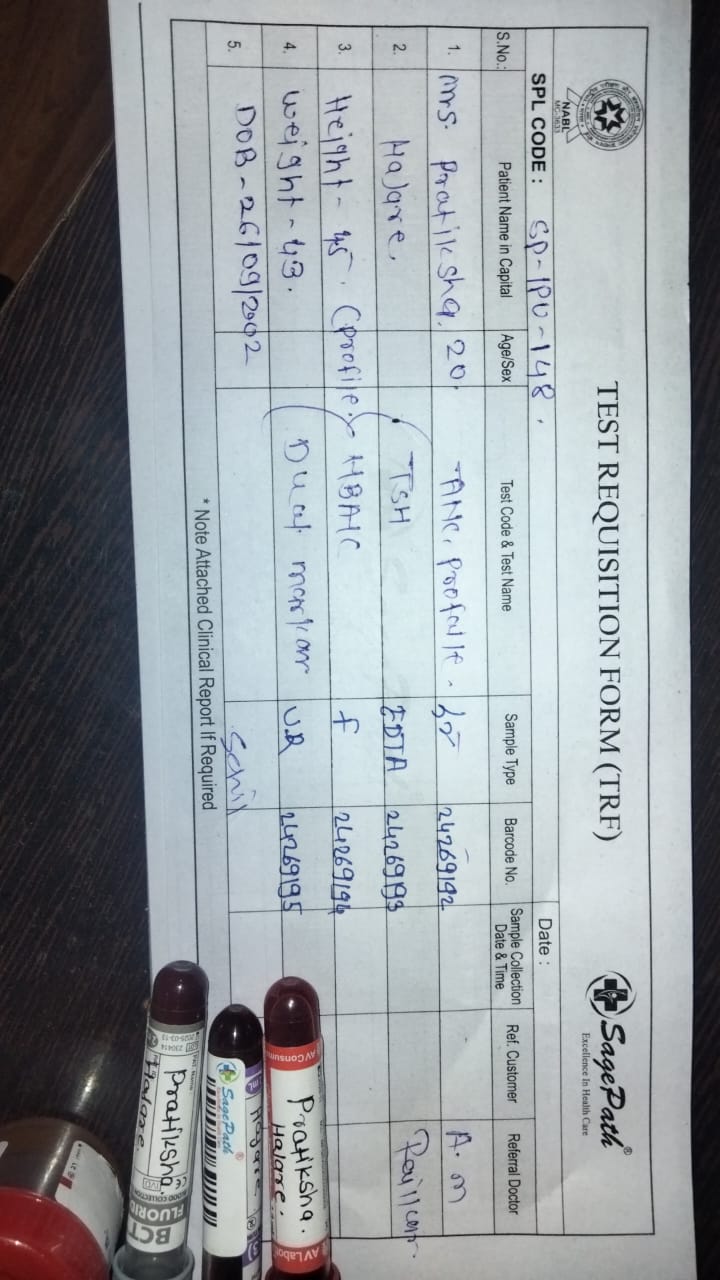 TEST REQUISITION FORM (TRF)
SagePath®
Excellence In Health Care
NABL
MC-3633
SPL CODE : SP-IPU-148.
Date :
S.No.: Patient Name in Capital Age/Sex Test Code & Test Name Sample Type Barcode No. Sample Collection Date & Time Ref. Customer Referral Doctor
1. Mrs. Pratiksha, 20. ANC, profaile. 24269192 A.M
2. Halare, TSH EDTA 24269193
3. Height - 45. (profile.) HBA1C F 24269194
4. weight - 43. Dual markar UR 24269195
5. DOB - 26/09/2002
* Note Attached Clinical Report If Required
Pratiksha.
Halare.
AV Consum
AV Labor
SagePath®
Halare
Pratiksha.
Halare.
230414
2025-03-13
IVD
CE
BLOOD COLLECTION
BCT
FLUORID